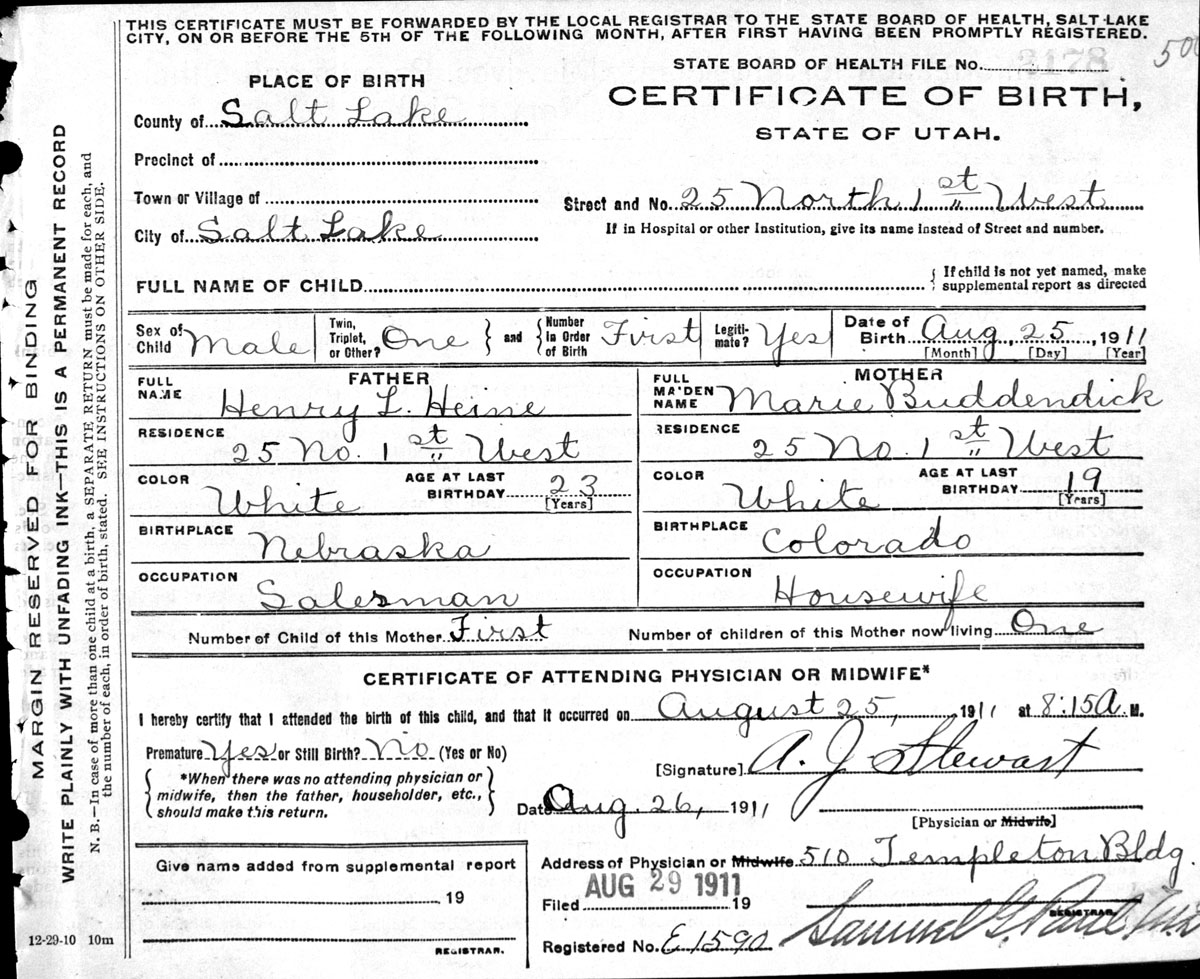 THIS CERTIFICATE MUST BE FORWARDED BY THE LOCAL REGISTRAR TO THE STATE BOARD OF HEALTH, SALT LAKE
CITY, ON OR BEFORE THE 5TH OF THE FOLLOWING MONTH, AFTER FIRST HAVING BEEN PROMPTLY REGISTERED.
STATE BOARD OF HEALTH FILE No. 3178
PLACE OF BIRTH
CERTIFICATE OF BIRTH,
STATE OF UTAH.
County of Salt Lake
Precinct of
Town or Village of
Street and No. 25 North 1st West
City of Salt Lake
If in Hospital or other Institution, give its name instead of Street and number.
FULL NAME OF CHILD
If child is not yet named, make
supplemental report as directed
Sex of Child Male Twin, Triplet, or Other? One and Number in Order of Birth First Legiti-mate? Yes Date of Birth Aug, 25 1911
[Month] [Day] [Year]
FATHER MOTHER
FULL NAME Henry L. Heine FULL MAIDEN NAME Marie Buddendick
RESIDENCE 25 No. 1st West RESIDENCE 25 No. 1st West
COLOR White AGE AT LAST BIRTHDAY 23 [Years] COLOR White AGE AT LAST BIRTHDAY 19 [Years]
BIRTHPLACE Nebraska BIRTHPLACE Colorado
OCCUPATION Salesman OCCUPATION Housewife
Number of Child of this Mother First Number of children of this Mother now living One
CERTIFICATE OF ATTENDING PHYSICIAN OR MIDWIFE*
I hereby certify that I attended the birth of this child, and that it occurred on August 25, 1911 at 8:15 A. M.
Premature Yes or Still Birth? No (Yes or No)
[Signature] A. J. Stewart
*When there was no attending physician or
midwife, then the father, householder, etc.,
should make this return.
Date Aug. 26, 1911
[Physician or Midwife]
Give name added from supplemental report
19
REGISTRAR.
Address of Physician or Midwife 510 Templeton Bldg.
AUG 29 1911
Filed 19
REGISTRAR.
Registered No. E1590 Samuel G. Paul
12-29-10 10m
MARGIN RESERVED FOR BINDING
WRITE PLAINLY WITH UNFADING INK—THIS IS A PERMANENT RECORD
N. B.—In case of more than one child at a birth, a SEPARATE RETURN must be made for each, and
the number of each, in order of birth, stated. SEE INSTRUCTIONS ON OTHER SIDE.